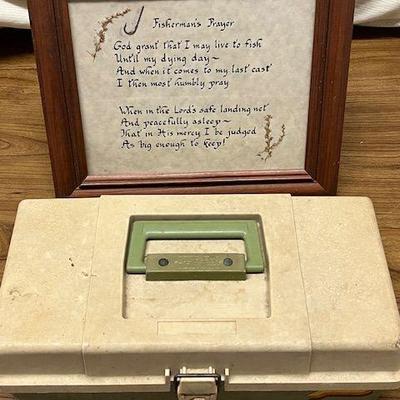 Fisherman's Prayer
God grant that I may live to fish
Until my dying day~
And when it comes to my last cast
I then most humbly pray
When in the Lord's safe landing net
And peacefully asleep~
That in His mercy I be judged
As big enough to keep!